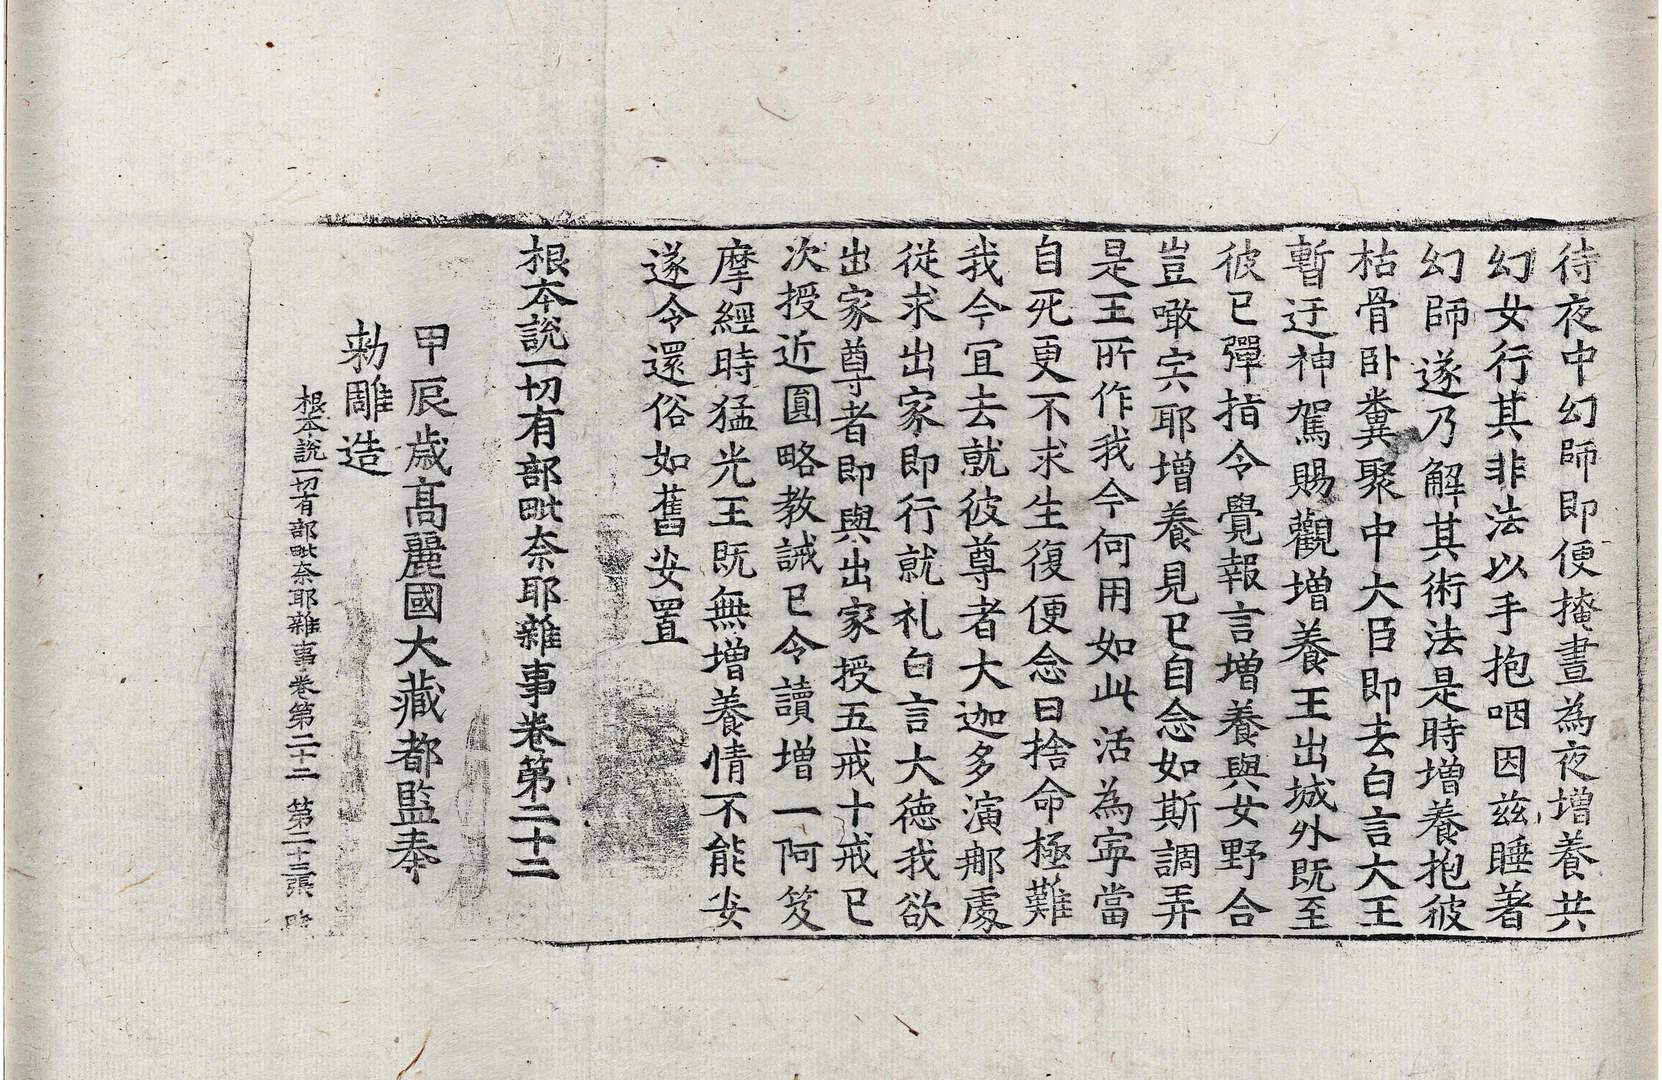 待夜中幻師即便掩晝為夜增養共
幻女行其非法以手抱咽因兹睡著
幻師遂乃解其術法是時增養抱彼
枯骨卧糞聚中大臣即去白言大王
暫迂神駕賜觀增養王出城外既至
彼已彈指令覺報言增養與女野合
豈噉宍耶增養見已自念如斯調弄
是王所作我今何用如此活為寧當
自死更不求生復便念曰捨命極難
我今冝去就彼尊者大迦多演那處
從求出家即行就礼白言大德我欲
出家尊者即與出家授五戒十戒已
次授近圓略教誡已令讀增一阿笈
摩經時猛光王既無增養情不能安
遂令還俗如舊安置
根本說一切有部毗奈耶雜事卷第二十二
甲辰歲高麗國大藏都監奉
勅雕造
根本說一切有部毗奈耶雜事卷第二十二 第二十三張